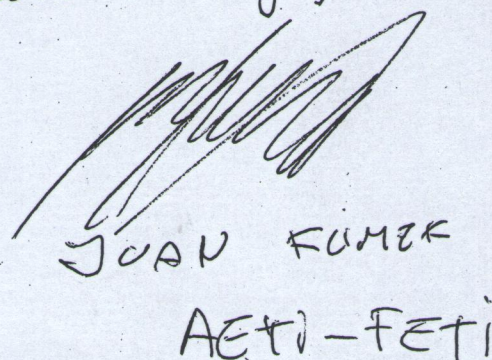 JUAN KUMEK
AETI-FETI